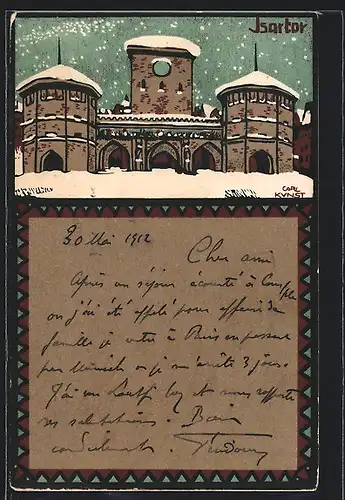 Isartor
CARL
KUNST
30 Mai 1912
Cher ami
Après un séjour écourté à
où j'ai été appelé pour affaires de
famille je rentre à Paris en passant
par Munich où je m'arrête 3 jours.
J'ai vu bey et vous rapporte
ses salutations. Bien
cordialement